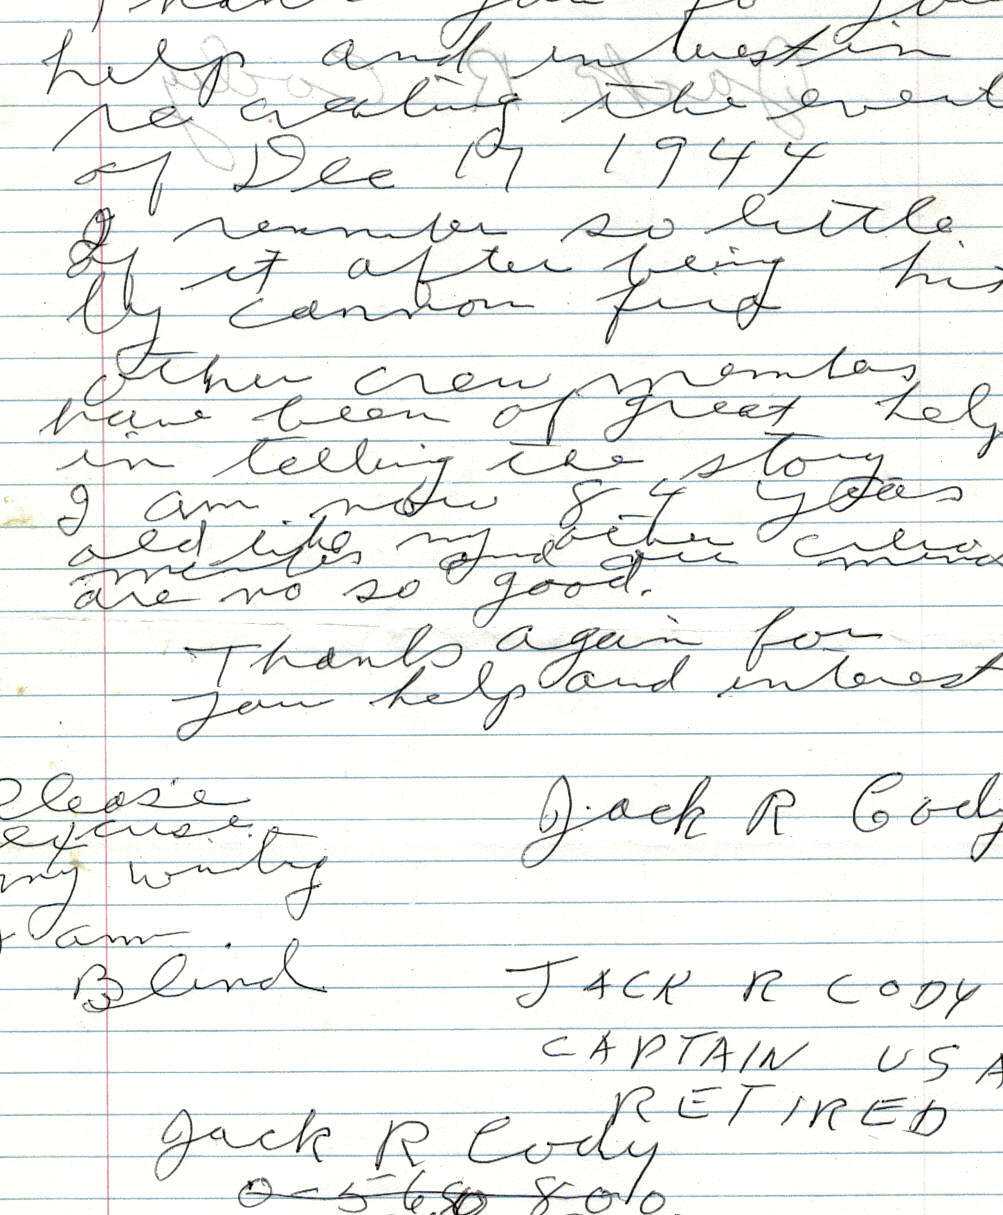 Thank you fo you
help and intrest in
re creating the event
of Dec 17 1944
I remmber so little
of it after being his
by cannon fire
Other crew members
have been of great help
in telling the story
I am now 84 years
old like my other crew
members and our mind
are no so good.
Thanks again for
your help and interest
Please
excuse
my writing
I am
Blind
Jack R Cody
JACK R CODY
CAPTAIN USA
RETIRED
Jack R Cody
0-560800